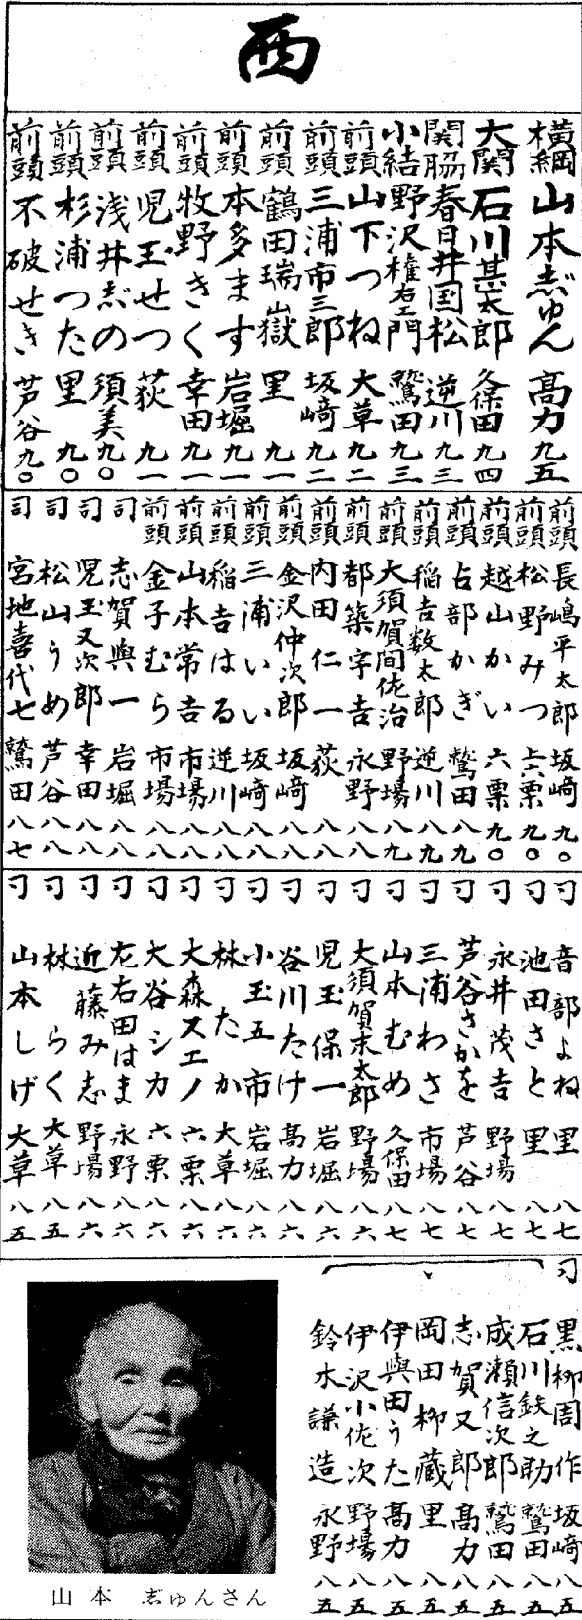 西
横綱 山本志゛ゅん 高力 九五
大関 石川甚太郎 久保田 九四
関脇 春日井国松 逆川 九三
小結 野沢権右エ門 鷲田 九三
前頭 山下つね 大草 九二
前頭 三浦市三郎 坂崎 九二
前頭 鶴田瑞嶽 里 九一
前頭 本多ます 岩堀 九一
前頭 牧野きく 幸田 九一
前頭 児玉せつ 荻 九一
前頭 浅井志゛の 須美 九〇
前頭 杉浦つた 里 九〇
前頭 不破せき 芦谷 九〇
前頭 長嶋平太郎 坂崎 九〇
前頭 松野みつ 六栗 九〇
前頭 越山かい 六栗 九〇
前頭 占部かぎ 鷲田 八九
前頭 稲吉数太郎 逆川 八九
前頭 大須賀間佐治 野場 八九
前頭 都築字吉 永野 八八
前頭 内田仁一 荻 八八
前頭 金沢仲次郎 坂崎 八八
前頭 三浦いい 坂崎 八八
前頭 稲吉はる 逆川 八八
前頭 山本常吉 市場 八八
前頭 金子むら 市場 八八
司 志賀與一 岩堀 八八
司 児玉又次郎 幸田 八八
司 松山うめ 芦谷 八八
司 宮地喜代七 鷲田 八七
司 音部よね 里 八七
司 池田さと 里 八七
司 永井茂吉 野場 八七
司 芦谷さかを 芦谷 八七
司 三浦わさ 市場 八七
司 山本むめ 久保田 八七
司 大須賀末太郎 野場 八六
司 児玉保一 岩堀 八六
司 谷川たけ 高力 八六
司 小玉五市 岩堀 八六
司 林たか 大草 八六
司 大森スエノ 六栗 八六
司 大谷シカ 六栗 八六
司 左右田はま 永野 八六
司 近藤み志 野場 八六
司 林らく 大草 八五
司 山本しげ 大草 八五
司 黒柳周作 坂崎 八五
石川鉄之助 鷲田 八五
成瀬信次郎 鷲田 八五
志賀又郎 高力 八五
岡田柳蔵 里 八五
伊與田うた 高力 八五
伊沢小佐次 野場 八五
鈴木謙造 永野 八五
山本 志゛ゅんさん